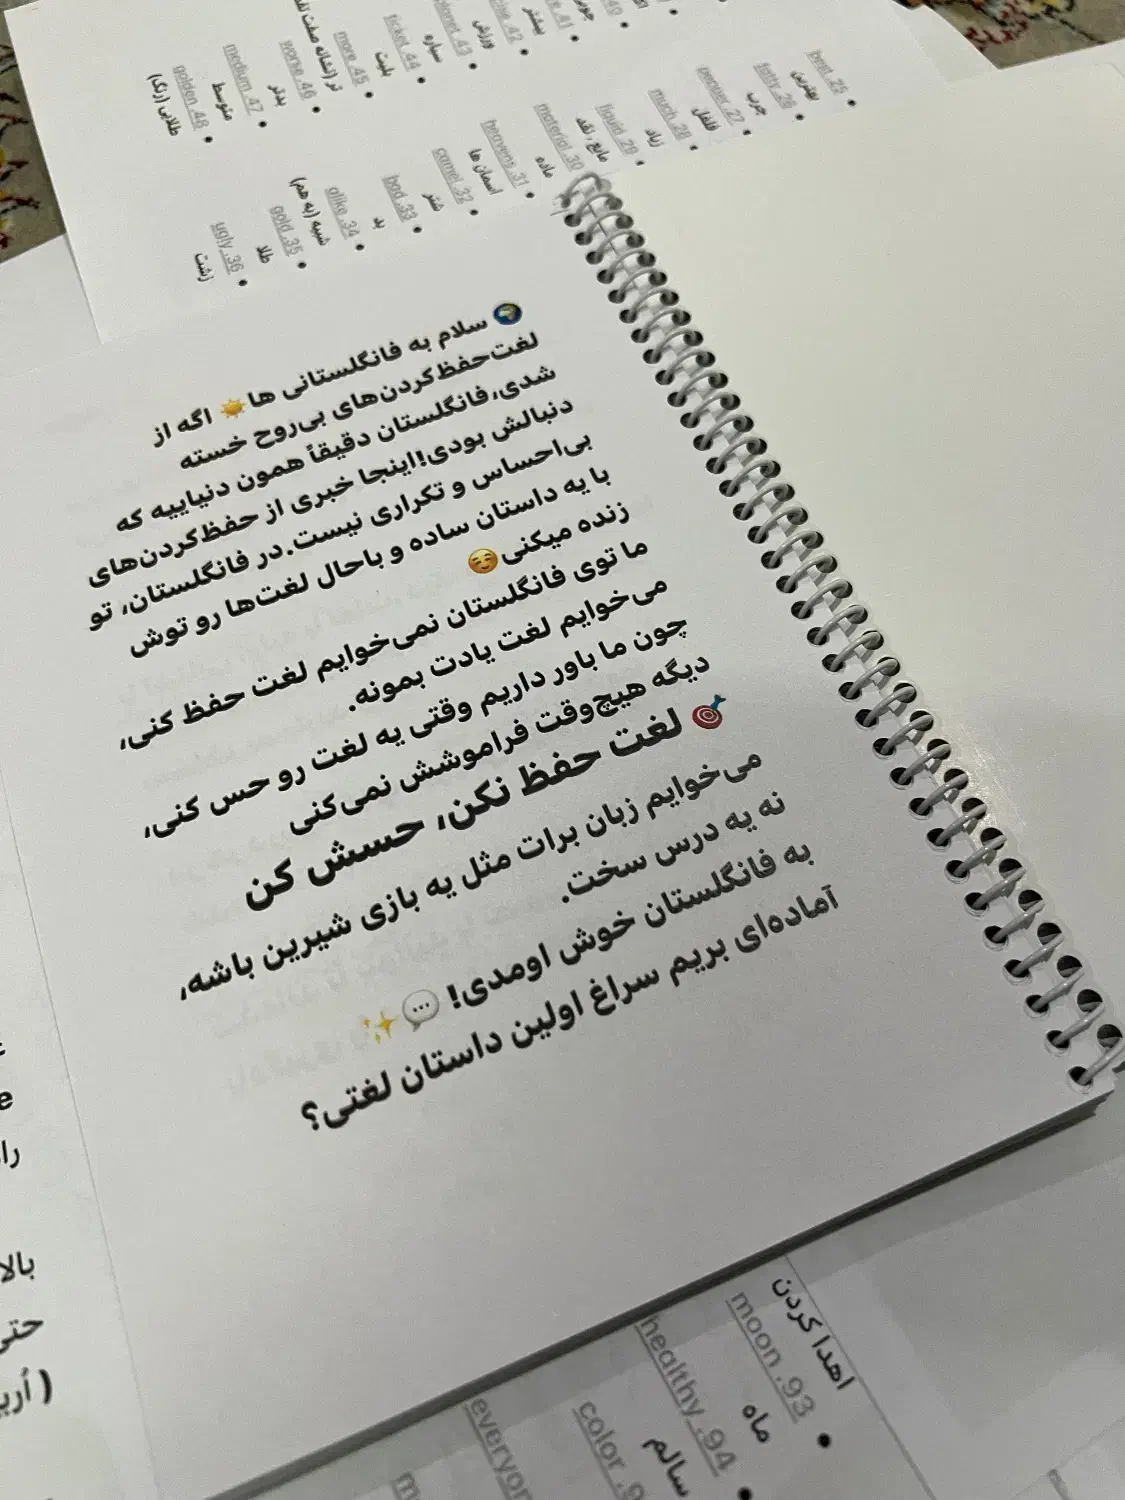 🌍 سلام به فانگلستانی ها☀️ اگه از
لغت‌حفظ‌کردن‌های بی‌روح خسته
شدی،فانگلستان دقیقاً همون دنیاییه که
دنبالش بودی!اینجا خبری از حفظ‌کردن‌های
بی‌احساس و تکراری نیست.در فانگلستان، تو
با یه داستان ساده و باحال لغت‌ها رو توش
زنده میکنی☺️
ما توی فانگلستان نمی‌خوایم لغت حفظ کنی،
می‌خوایم لغت یادت بمونه.
چون ما باور داریم وقتی یه لغت رو حس کنی،
دیگه هیچ‌وقت فراموشش نمی‌کنی
🎯 لغت حفظ نکن، حسش کن
می‌خوایم زبان برات مثل یه بازی شیرین باشه،
نه یه درس سخت.
به فانگلستان خوش اومدی! 💬✨
آماده‌ای بریم سراغ اولین داستان لغتی؟
best .25
بهترین
fatty .26
چرب
pepper .27
فلفل
much .28
زیاد
liquid .29
مایع، نقد
material .30
ماده
heavens .31
آسمان ها
camel .32
شتر
bad .33
بد
alike .34
شبیه (به هم)
gold .35
طلا
ugly .36
زشت
بیشتر
ورزش
planet .43
سیاره
ticket .44
بلیت
more .45
worse .46
بدتر
medium .47
متوسط
golden .48
طلایی (رنگ)
اهدا کردن
moon .93
ماه
healthy .94
سالم
color
بالا
حتی